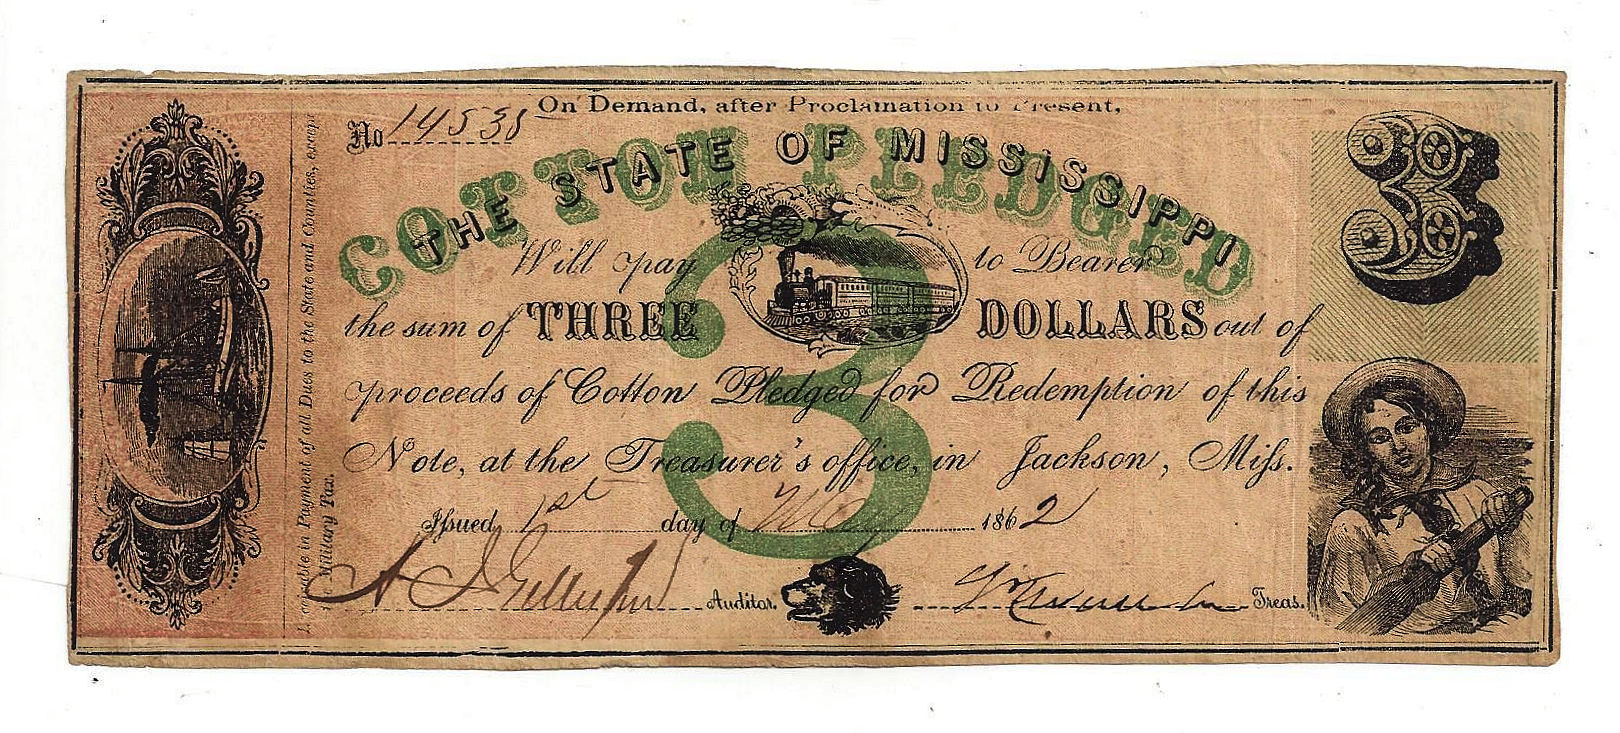 On Demand, after Proclamation to Present,
No 14538
COTTON PLEDGED
THE STATE OF MISSISSIPPI
Will pay to Bearer
3
the sum of THREE DOLLARS out of
proceeds of Cotton Pledged for Redemption of this
Note, at the Treasurer's office, in Jackson, Miss.
Issued 1st day of 1862
Auditor. Treas.
3
in Payment of all Dues to the State and Counties, except
Military Tax.